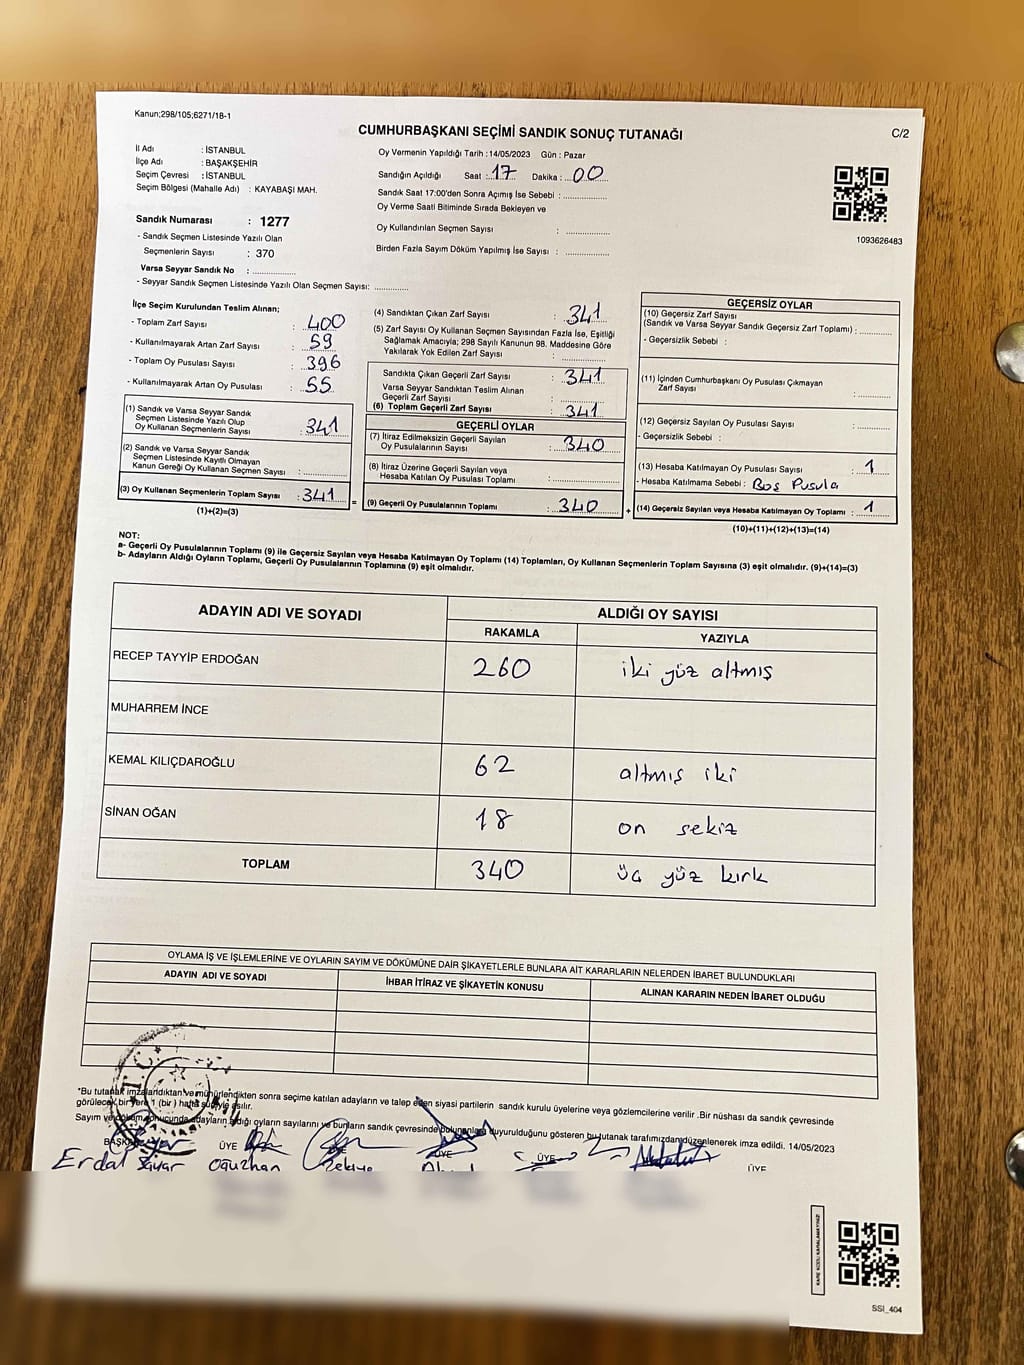 Kanun;298/105;6271/18-1
CUMHURBAŞKANI SEÇİMİ SANDIK SONUÇ TUTANAĞI
C/2
İl Adı : İSTANBUL
İlçe Adı : BAŞAKŞEHİR
Seçim Çevresi : İSTANBUL
Seçim Bölgesi (Mahalle Adı) : KAYABAŞI MAH.
Sandık Numarası : 1277
- Sandık Seçmen Listesinde Yazılı Olan
Seçmenlerin Sayısı : 370
Varsa Seyyar Sandık No : ............
- Seyyar Sandık Seçmen Listesinde Yazılı Olan Seçmen Sayısı: ............
Oy Vermenin Yapıldığı Tarih : 14/05/2023 Gün : Pazar
Sandığın Açıldığı Saat : 17 Dakika : 00
Sandık Saat 17:00'den Sonra Açımış İse Sebebi : ............
Oy Verme Saati Bitiminde Sırada Bekleyen ve
Oy Kullandırılan Seçmen Sayısı : ............
Birden Fazla Sayım Döküm Yapılmış İse Sayısı : ............
1093626483
İlçe Seçim Kurulundan Teslim Alınan;
- Toplam Zarf Sayısı : 400
- Kullanılmayarak Artan Zarf Sayısı : 59
- Toplam Oy Pusulası Sayısı : 396
- Kullanılmayarak Artan Oy Pusulası : 55
(1) Sandık ve Varsa Seyyar Sandık
Seçmen Listesinde Yazılı Olup
Oy Kullanan Seçmenlerin Sayısı : 341
(2) Sandık ve Varsa Seyyar Sandık
Seçmen Listesinde Kayıtlı Olmayan
Kanun Gereği Oy Kullanan Seçmen Sayısı : ............
(3) Oy Kullanan Seçmenlerin Toplam Sayısı : 341
(1)+(2)=(3)
(4) Sandıktan Çıkan Zarf Sayısı : 341
(5) Zarf Sayısı Oy Kullanan Seçmen Sayısından Fazla İse, Eşitliği
Sağlamak Amacıyla; 298 Sayılı Kanunun 98. Maddesine Göre
Yakılarak Yok Edilen Zarf Sayısı : ............
Sandıkta Çıkan Geçerli Zarf Sayısı : 341
Varsa Seyyar Sandıktan Teslim Alınan
Geçerli Zarf Sayısı : ............
(6) Toplam Geçerli Zarf Sayısı : 341
GEÇERLİ OYLAR
(7) İtiraz Edilmeksizin Geçerli Sayılan
Oy Pusulalarının Sayısı : 340
(8) İtiraz Üzerine Geçerli Sayılan veya
Hesaba Katılan Oy Pusulası Toplamı : ............
= (9) Geçerli Oy Pusulalarının Toplamı : 340 +
GEÇERSİZ OYLAR
(10) Geçersiz Zarf Sayısı
(Sandık ve Varsa Seyyar Sandık Geçersiz Zarf Toplamı) : ............
- Geçersizlik Sebebi :
(11) İçinden Cumhurbaşkanı Oy Pusulası Çıkmayan
Zarf Sayısı : ............
(12) Geçersiz Sayılan Oy Pusulası Sayısı : ............
- Geçersizlik Sebebi :
(13) Hesaba Katılmayan Oy Pusulası Sayısı : 1
- Hesaba Katılmama Sebebi : Boş Pusula
(14) Geçersiz Sayılan veya Hesaba Katılmayan Oy Toplamı : 1
(10)+(11)+(12)+(13)=(14)
NOT:
a- Geçerli Oy Pusulalarının Toplamı (9) ile Geçersiz Sayılan veya Hesaba Katılmayan Oy Toplamı (14) Toplamları, Oy Kullanan Seçmenlerin Toplam Sayısına (3) eşit olmalıdır. (9)+(14)=(3)
b- Adayların Aldığı Oyların Toplamı, Geçerli Oy Pusulalarının Toplamına (9) eşit olmalıdır.
ADAYIN ADI VE SOYADI ALDIĞI OY SAYISI
RAKAMLA YAZIYLA
RECEP TAYYİP ERDOĞAN 260 iki yüz altmış
MUHARREM İNCE
KEMAL KILIÇDAROĞLU 62 altmış iki
SİNAN OĞAN 18 on sekiz
TOPLAM 340 üç yüz kırk
OYLAMA İŞ VE İŞLEMLERİNE VE OYLARIN SAYIM VE DÖKÜMÜNE DAİR ŞİKAYETLERLE BUNLARA AİT KARARLARIN NELERDEN İBARET BULUNDUKLARI
ADAYIN ADI VE SOYADI İHBAR İTİRAZ VE ŞİKAYETİN KONUSU ALINAN KARARIN NEDEN İBARET OLDUĞU
T.C.
*Bu tutanak imzalandıktan ve mühürlendikten sonra seçime katılan adayların ve talep eden siyasi partilerin sandık kurulu üyelerine veya gözlemcilerine verilir .Bir nüshası da sandık çevresinde
görülecek bir yere 1 (bir ) hafta süreyle asılır.
Sayım ve döküm sonucunda adayların aldığı oyların sayılarını ve bunların sandık çevresinde bulunanlara duyurulduğunu gösteren bu tutanak tarafımızdan düzenlenerek imza edildi. 14/05/2023
BAŞKAN ÜYE ÜYE ÜYE ÜYE
Erdal Oğuzhan Zekiye
KARE KODU KARALAMAYINIZ!
SSI_404